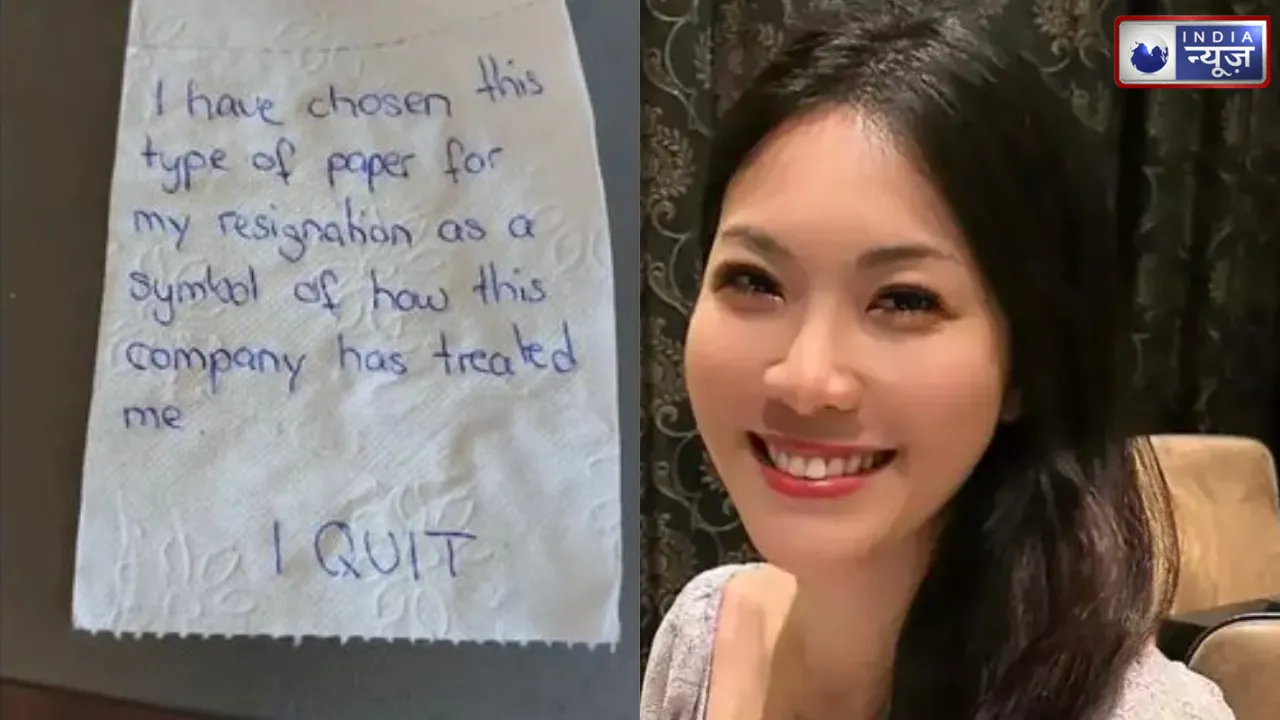 I have chosen this
type of paper for
my resignation as a
symbol of how this
company has treated
me
I QUIT
INDIA
न्यूज़